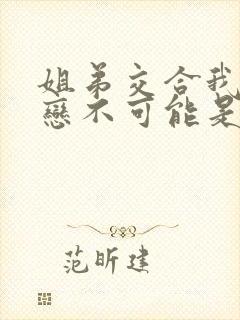 姐弟交合我
戀不可能是
范昕建